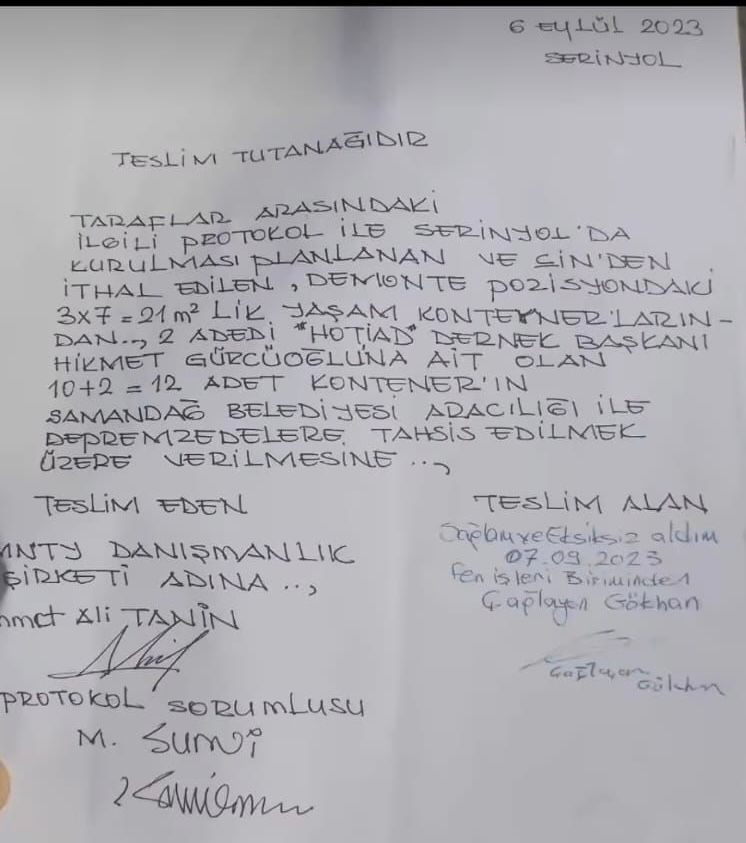 6 EYLÜL 2023
SERİNYOL
TESLİM TUTANAĞIDIR
TARAFLAR ARASINDAKİ
İLGİLİ PROTOKOL İLE SERİNYOL'DA
KURULMASI PLANLANAN VE ÇİN'DEN
İTHAL EDİLEN, DEMONTE POZİSYONDAKİ
3x7=21 m² LİK YAŞAM KONTEYNER'LARIN-
DAN.., 2 ADEDİ "HOTİAD" DERNEK BAŞKANI
HİKMET GÜRCÜOĞLU'NA AİT OLAN
10+2=12 ADET KONTENER'IN
SAMANDAĞ BELEDİYESİ ARACILIĞI İLE
DEPREMZEDELERE TAHSİS EDİLMEK
ÜZERE VERİLMESİNE ..,
TESLİM EDEN
MNTY DANIŞMANLIK
ŞİRKETİ ADINA ..,
hmet Ali TANİN
PROTOKOL SORUMLUSU
M.
TESLİM ALAN
Sağlam ve Eksiksiz aldım
07.09.2023
Fen işleri Biriminden
Çağlayan Gökhan
Çağlayan
Gökhan